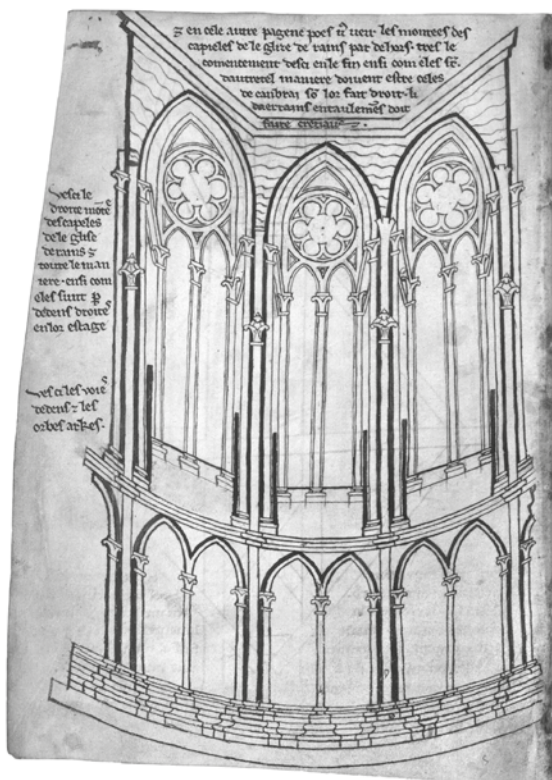 ⁊ en cele autre pagene poes vͦ veir les montees des
capieles de le glize de rains par dehors. tres le
comencement desci en le fin ensi com eles sͦt.
dautretel maniere doivent estre celes
de canbrai sͦ lor fait droit. li
daerrains entaulemēs doit
faire cretiaus.
Vesci le
droite mōtee
des capeles
de le glise
de rains ⁊
toute le man
iere. ensi com
eles sunt ꝑ
dedens droites
en lor estage
Vesci les voies
dedens ⁊ les
orbes arkes.